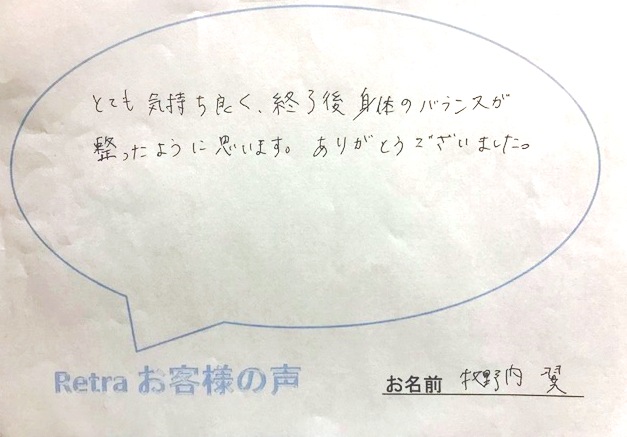 とても気持ち良く、終了後身体のバランスが
整ったように思います。ありがとうございました。
Retra お客様の声
お名前 牧野内 翼